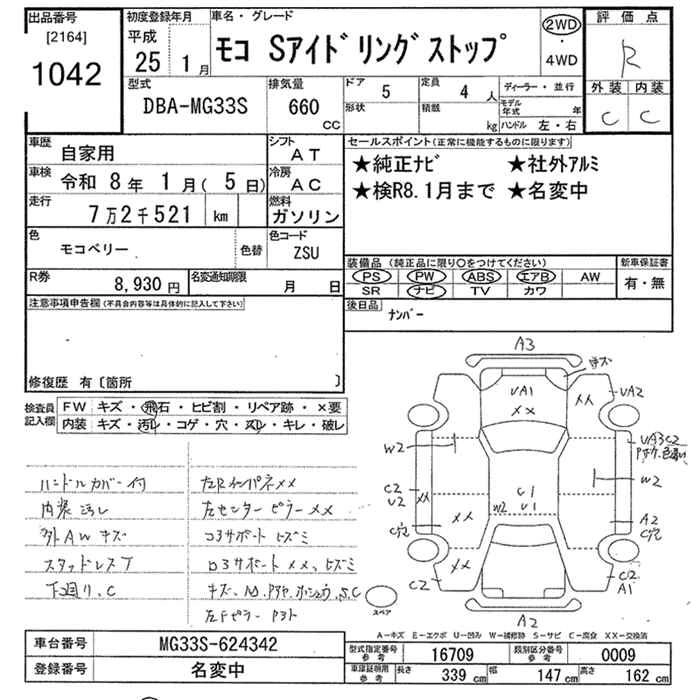 出品番号
[2164]
1042
初度登録年月
平成
25年 1月
車名・グレード
モコ Sアイドリングストップ
2WD
・
4WD
評価点
R
外装 内装
C C
型式
DBA-MG33S
排気量
660 CC
ドア 5
形状
定員 4 人
積載 kg
ディーラー・並行
モデル年式 年
ハンドル 左・右
車歴 自家用
車検 令和 8年 1月( 5日)
走行 7万2千521 km
シフト AT
冷房 AC
燃料 ガソリン
色 モコベリー 色替
色コード ZSU
R券 8,930円
名変通知期限 月 日
セールスポイント(正常に機能するものに限ります)
★純正ナビ ★社外アルミ
★検R8.1月まで ★名変中
装備品 (純正品に限り○をつけてください)
PS PW ABS エアB AW
SR ナビ TV カワ
新車保証書
有・無
後日品
ナンバー
注意事項申告欄(不具合内容等は具体的に記入して下さい)
修復歴 有〔箇所 〕
検査員記入欄
FW キズ・飛石・ヒビ割・リペア跡・×要
内装 キズ・汚レ・コゲ・穴・スレ・キレ・破レ
ハンドルカバー付
内装汚レ
外AWキズ
スタッドレスT
下廻り、C
左Rインパネメメ
左センターピラーメメ
コアサポート ヒズミ
A3
キズ
UA1
××
××
UA2
W2
W2
C2
U2
××
C1
U1
W2
××
A2
××
C2
C2
A1
A2
スペア
A-キズ E-エクボ U-凹み W-補修跡 S-サビ C-腐食 XX-交換済
車台番号 MG33S-624342
登録番号 名変中
型式指定番号参考 16709
類別区分番号参考 0009
車庫証明用参考 長さ 339 cm 幅 147 cm 高さ 162 cm